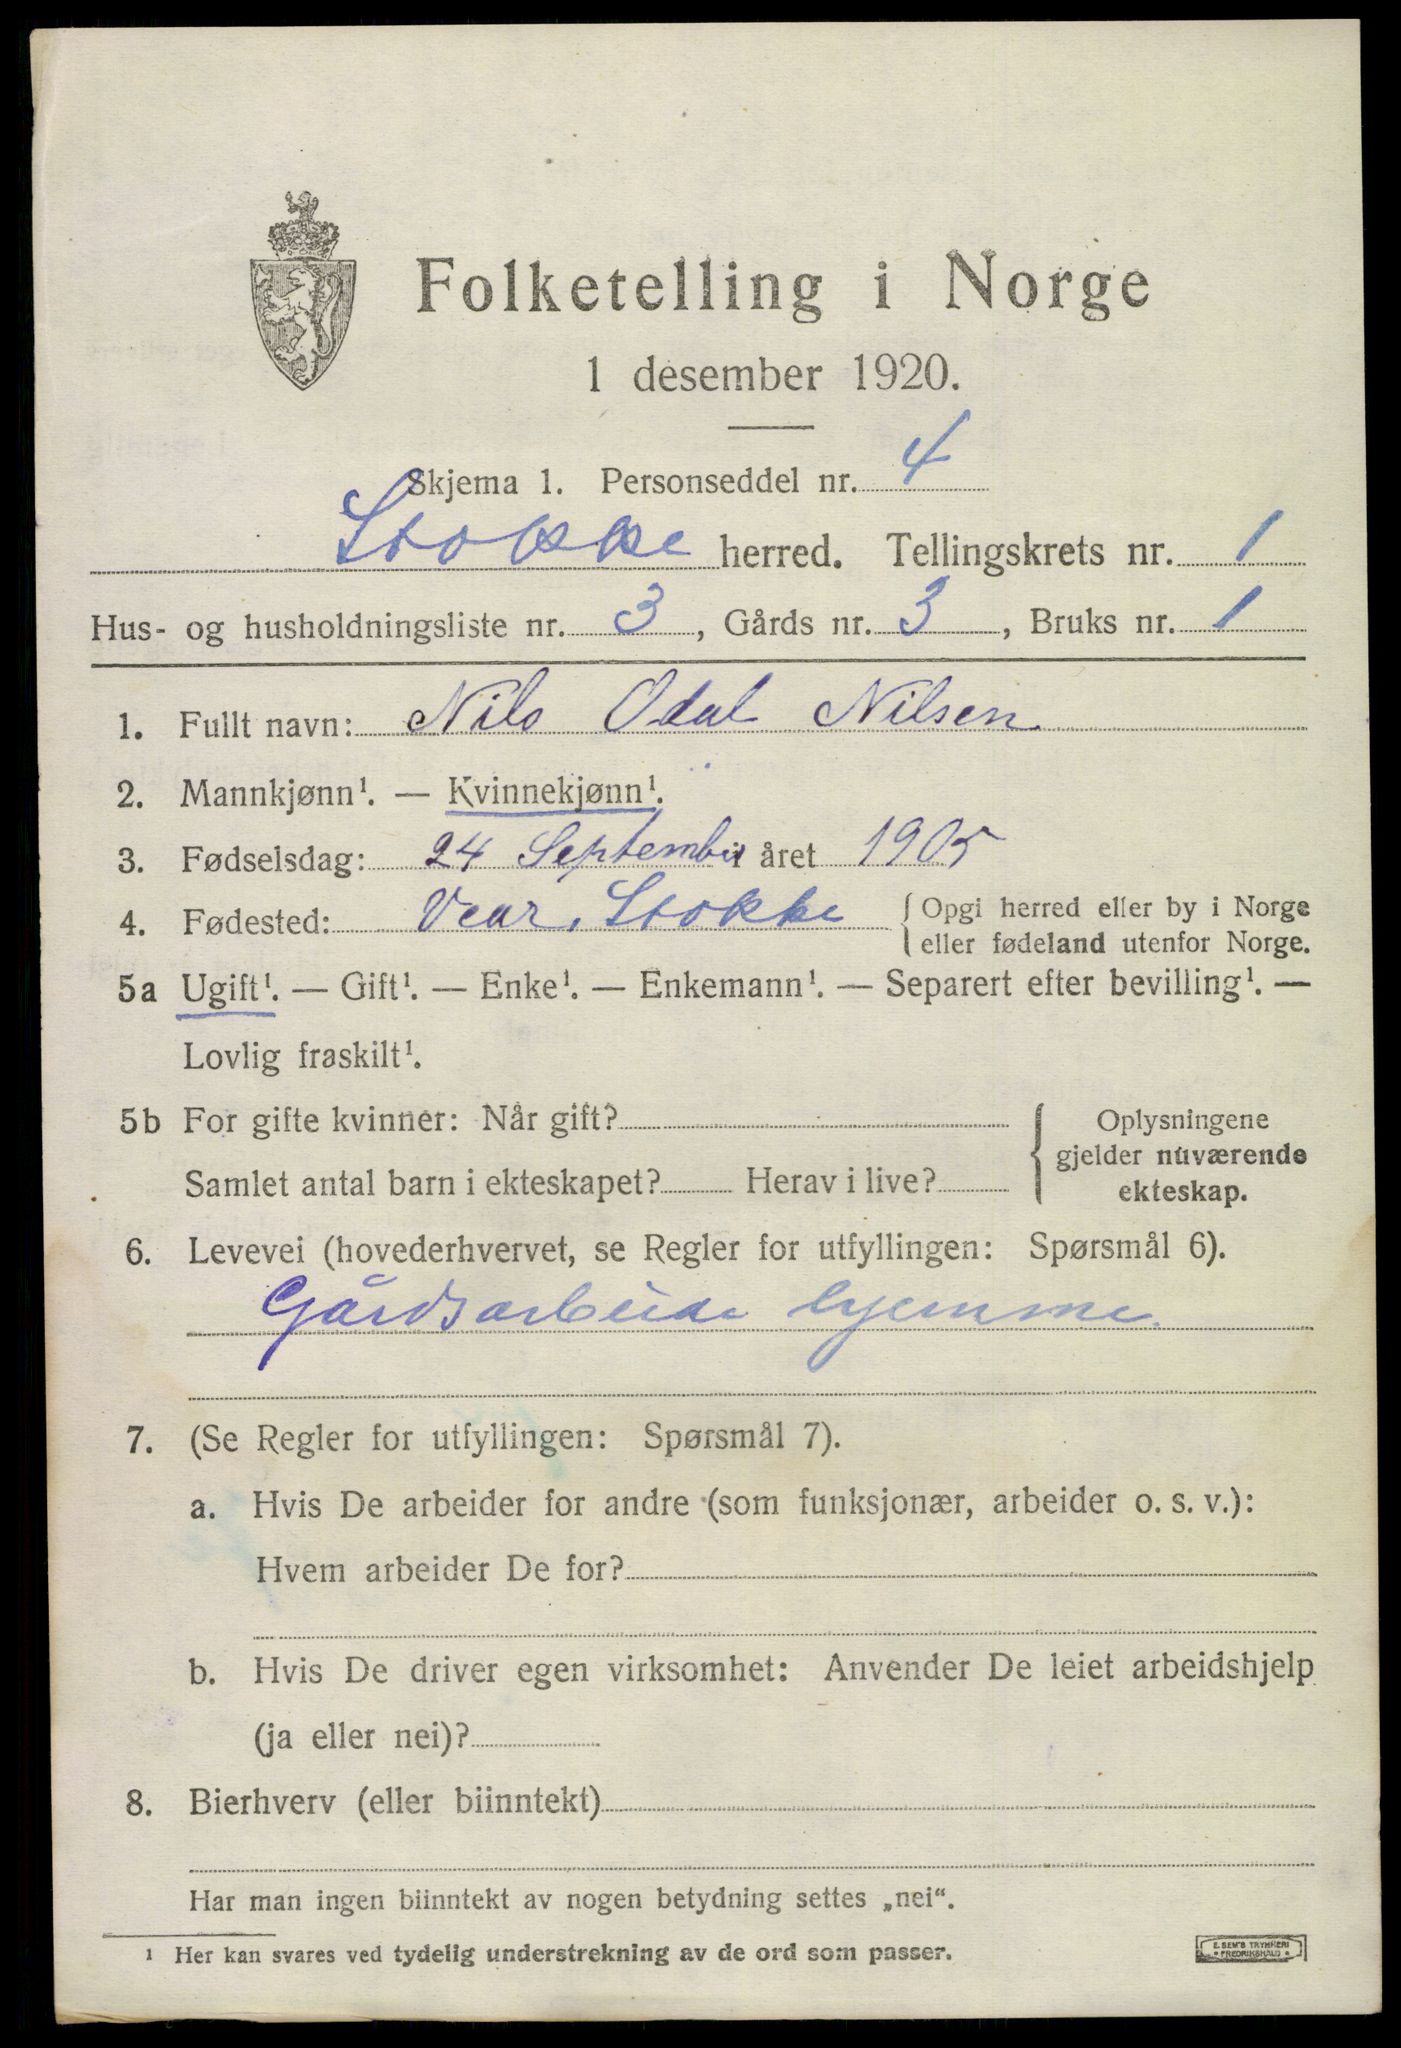 Folketelling i Norge
1 desember 1920.
Skjema 1. Personseddel nr. 4
Stokke herred. Tellingskrets nr. 1
Hus- og husholdningsliste nr. 3, Gårds nr. 3, Bruks nr. 1
1. Fullt navn: Nils Odal Nilsen
2. Mannkjønn¹. — Kvinnekjønn¹.
3. Fødselsdag: 24 September i året 1905
4. Fødested: Vear, Stokke { Opgi herred eller by i Norge
eller fødeland utenfor Norge.
5a Ugift¹. — Gift¹. — Enke¹. — Enkemann¹. — Separert efter bevilling¹. —
Lovlig fraskilt¹.
5b For gifte kvinner: Når gift? { Oplysningene
gjelder nuværende
Samlet antal barn i ekteskapet? Herav i live? ekteskap.
6. Levevei (hovederhvervet, se Regler for utfyllingen: Spørsmål 6).
Gårdsarbeide hjemme.
7. (Se Regler for utfyllingen: Spørsmål 7).
a. Hvis De arbeider for andre (som funksjonær, arbeider o. s. v.):
Hvem arbeider De for?
b. Hvis De driver egen virksomhet: Anvender De leiet arbeidshjelp
(ja eller nei)?
8. Bierhverv (eller biinntekt)
Har man ingen biinntekt av nogen betydning settes „nei“.
¹ Her kan svares ved tydelig understrekning av de ord som passer.
E. SEM'S TRYKKERI
FREDRIKSHALD